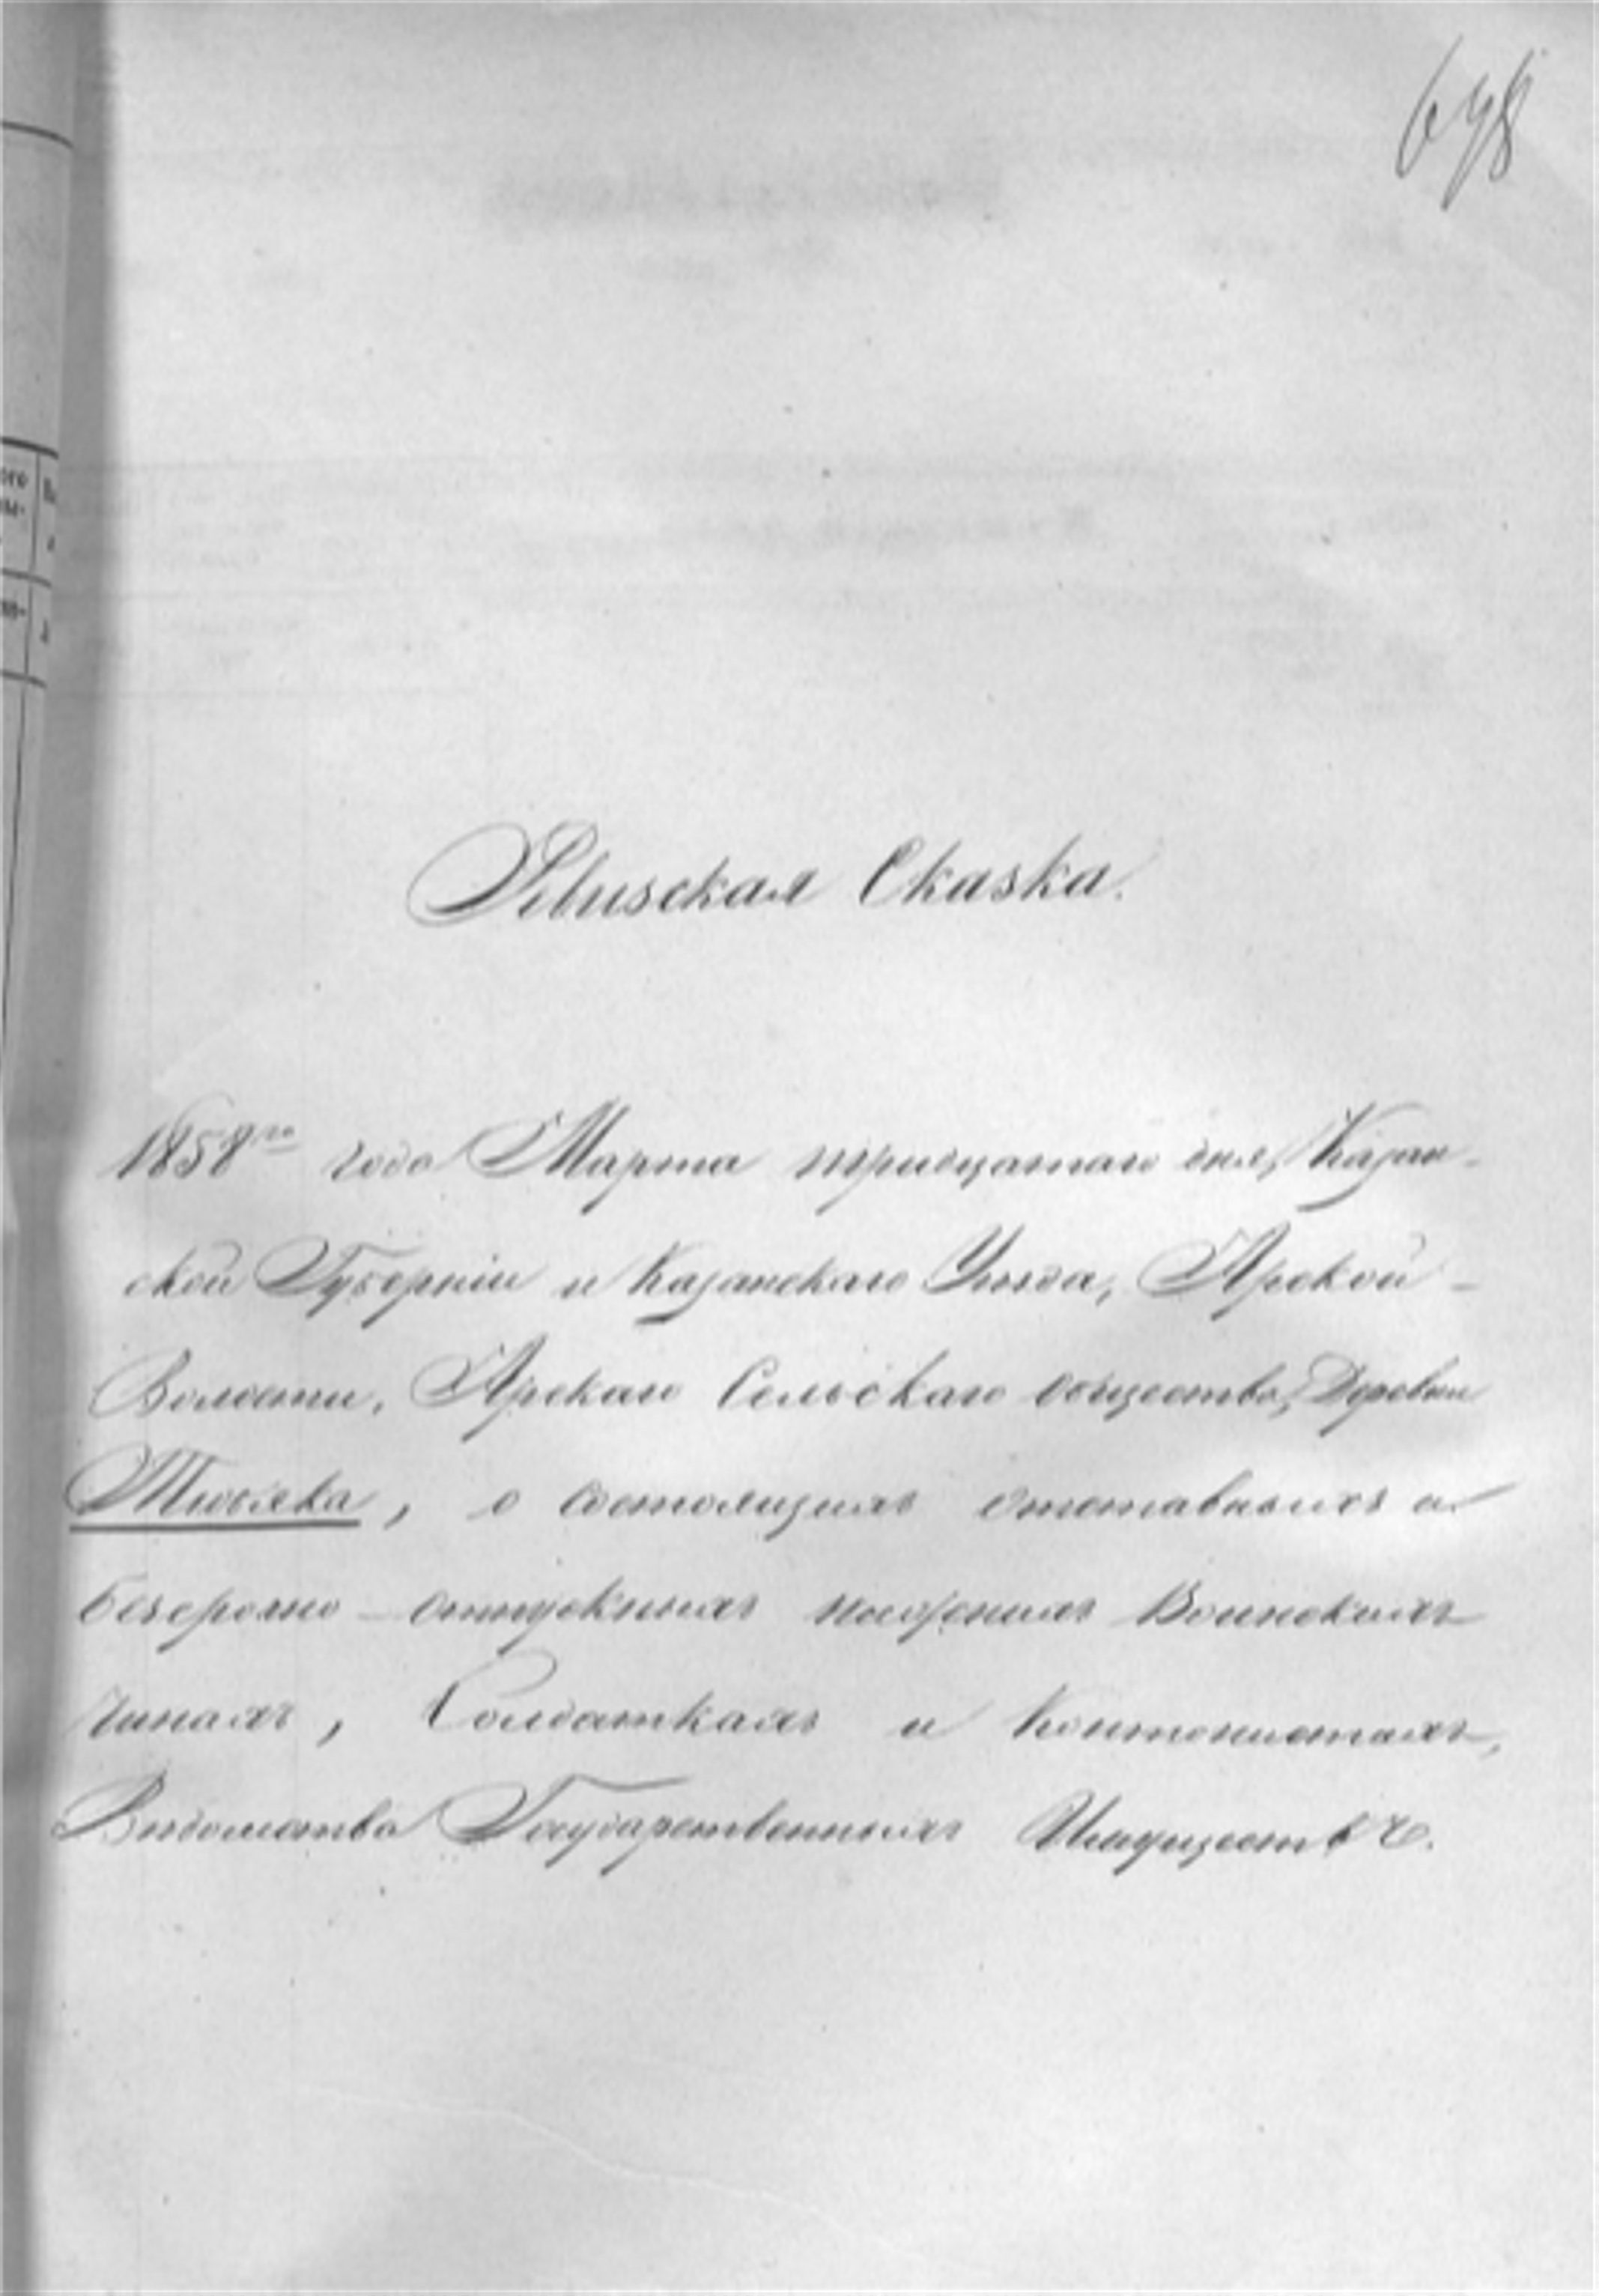 698
Ревизская Сказка.
1858го года Марта тридцатаго дня, Казан-
ской Губерніи и Казанскаго Уѣзда, Арской
Волости, Арскаго Сельскаго общества, Деревни
Тюбяка, о состоящихъ отставныхъ и
безсрочно-отпускныхъ нижнихъ Воинскихъ
чинахъ, Солдаткахъ и Кантонистахъ,
Вѣдомства Государственныхъ Имуществъ.